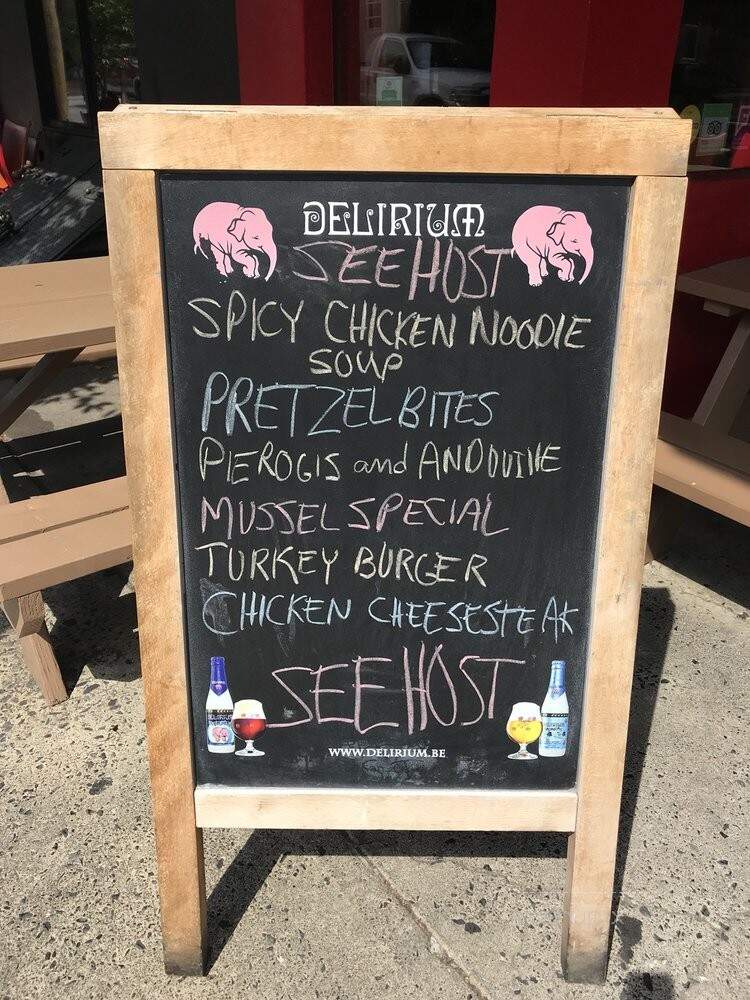 DELIRIUM
SEE HOST
SPICY CHICKEN NOODLE
SOUP
PRETZEL BITES
PIEROGIS and ANDOUILLE
MUSSEL SPECIAL
TURKEY BURGER
CHICKEN CHEESESTEAK
SEE HOST
WWW.DELIRIUM.BE